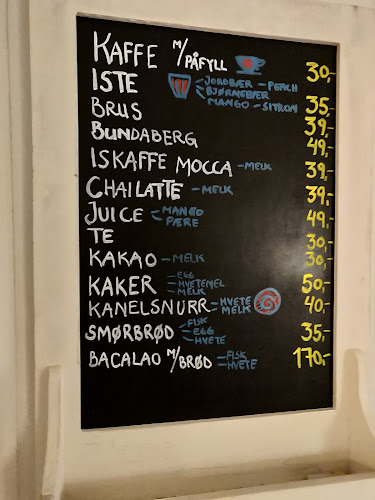 KAFFE M/PÅFYLL 30,-
ISTE - JORDBÆR - PEACH
- BJØRNEBÆR
- MANGO - SITRON 35,-
BRUS 39,-
BUNDABERG 49,-
ISKAFFE MOCCA - MELK 39,-
CHAILATTE - MELK 39,-
JUICE - MANGO 49,-
- PÆRE
TE 30,-
KAKAO - MELK 30,-
- EGG
KAKER - HVETEMEL 50,-
- MELK
KANELSNURR - HVETE 40,-
- MELK
- FISK
SMØRBRØD - EGG 35,-
- HVETE
BACALAO M/BRØD - FISK 170,-
- HVETE